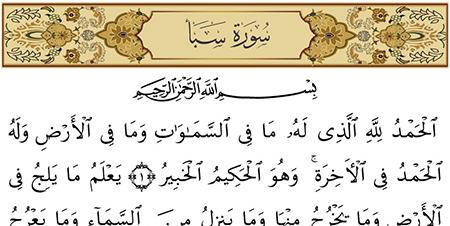 سُورَةُ سَبَأٍ
بِسْمِ اللَّهِ الرَّحْمَٰنِ الرَّحِيمِ
الْحَمْدُ لِلَّهِ الَّذِى لَهُۥ مَا فِى السَّمَٰوَٰتِ وَمَا فِى الْأَرْضِ وَلَهُ
الْحَمْدُ فِى الْأَخِرَةِ ۚ وَهُوَ الْحَكِيمُ الْخَبِيرُ ﴿١﴾ يَعْلَمُ مَا يَلِجُ فِى
الْأَرْضِ وَمَا يَخْرُجُ مِنْهَا وَمَا يَنزِلُ مِنَ السَّمَآءِ وَمَا يَعْرُجُ